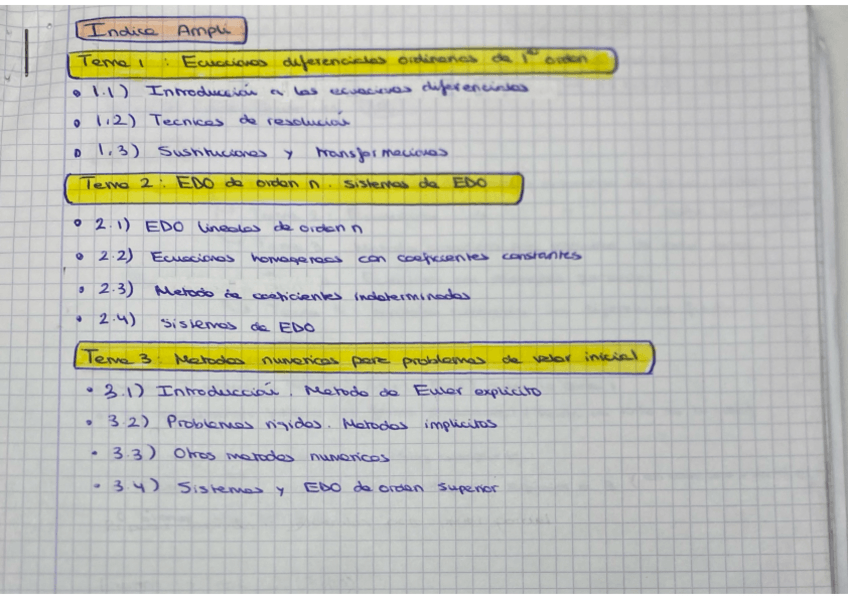 Indice Ampli
Tema 1 : Ecuaciones diferenciales ordinarias de 1er orden
1.1) Introducción a las ecuaciones diferenciales
1.2) Tecnicas de resolución
1.3) Sustituciones y transformaciones
Tema 2 : EDO de orden n. sistemas de EDO
2.1) EDO lineales de orden n
2.2) Ecuaciones homogeneas con coeficientes constantes
2.3) Metodo de coeficientes indeterminados
2.4) sistemas de EDO
Tema 3 : Metodos numericos para problemas de valor inicial
3.1) Introducción. Metodo de Euler explicito
3.2) Problemas rigidos. Metodos implicitos
3.3) Otros metodos numericos
3.4) Sistemas y EDO de orden superior